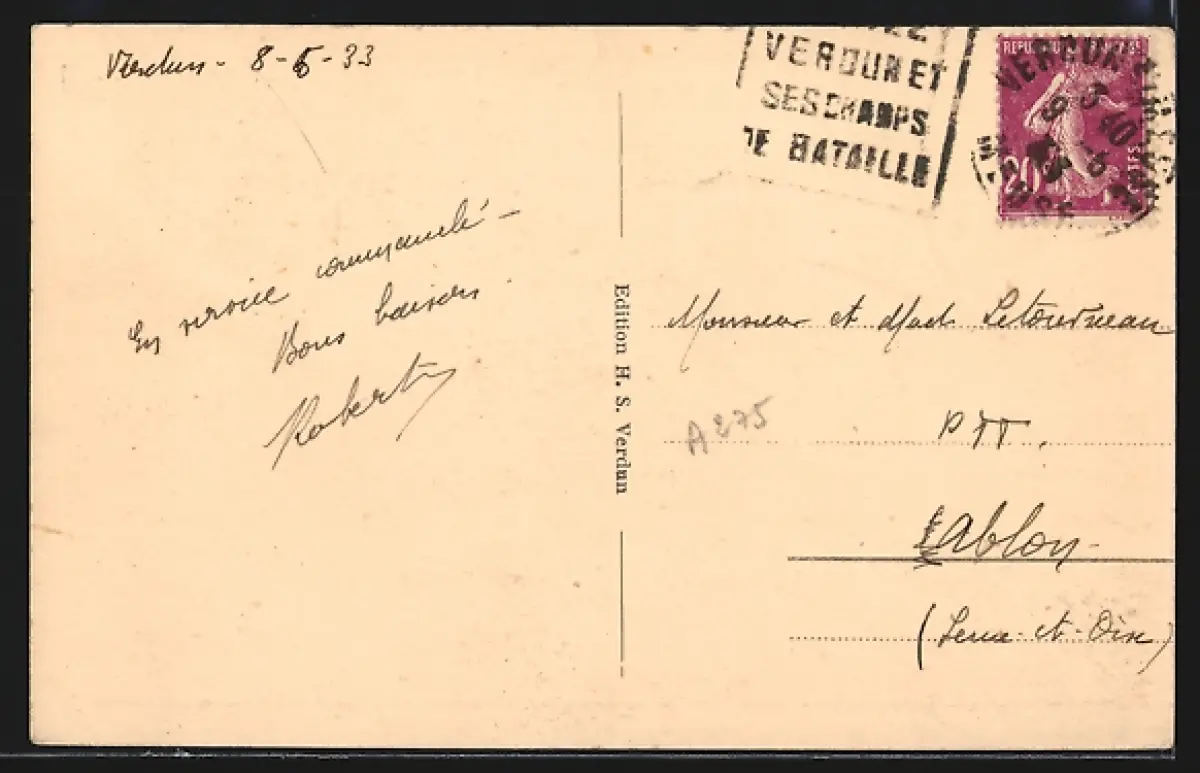 Verdun - 8-6-33
En service commandé -
Bons baisers.
Robert
Edition H. S. Verdun
VERDUN ET
SES CHAMPS
DE BATAILLE
REPUBLIQUE FRANÇAISE
20
VERDUN
MEUSE
Monsieur et Mad. Letourneau
A 275
PTT.
Ablon -
(Seine-et-Oise)